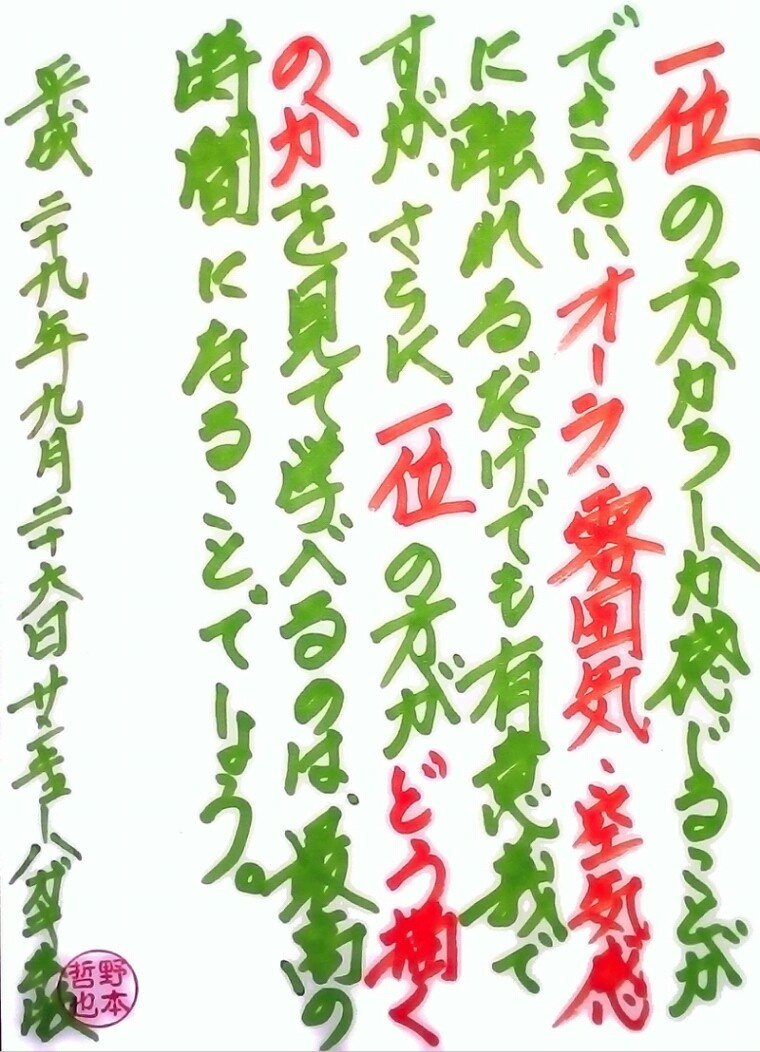 一位の方からしか感じることが
できないオーラ、雰囲気、空気感
に触れるだけでも有意義で
すが、さらに一位の方がどう描く
のかを見て学べるのは、最高の
時間になることでしょう。
平成二十九年九月二十六日
野本哲也